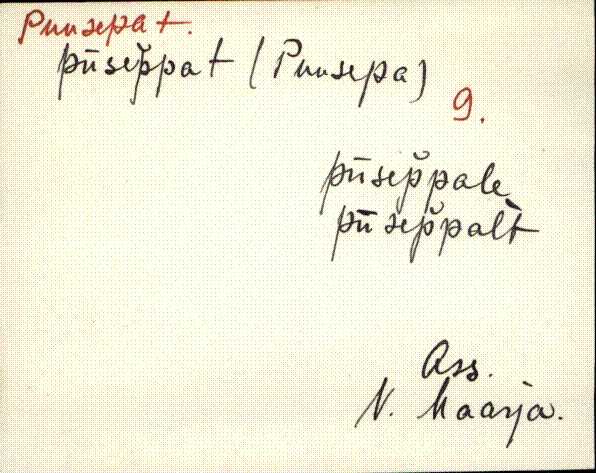 Puusepat.
pūsep̆pat (Puusepa)
9.
pūsep̆pale
pūsep̆pal̀t
Ass.
V. Maarja.